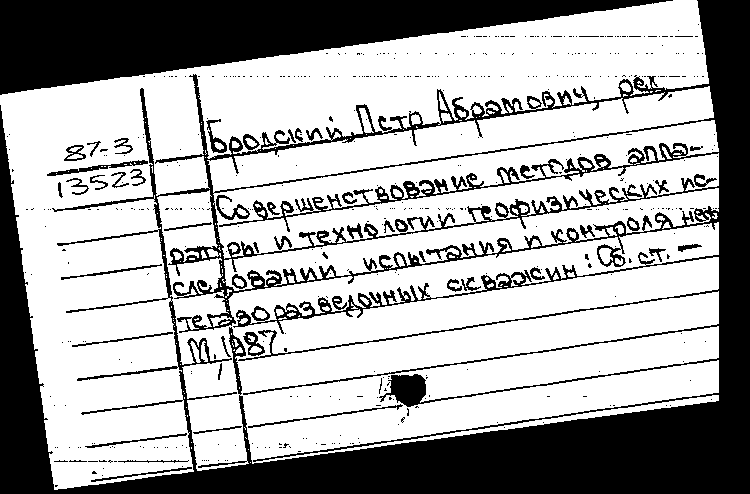 Бродский, Петр Абрамович, ред.
87-3
13523
Совершенствование методов, аппа-
ратуры и технологии геофизических ис-
следований, испытания и контроля неф
тегазоразведочных скважин: Сб. ст. —
М., 1987.